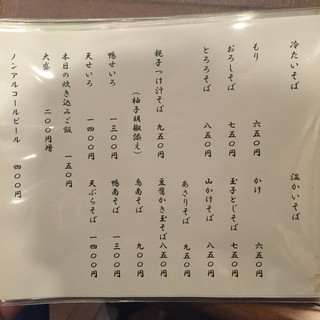 冷たいそば
もり 六五〇円
おろしそば 七五〇円
とろろそば 八五〇円
親子つけ汁そば 九五〇円
(柚子胡椒添え)
鴨せいろ 一三〇〇円
天せいろ 一四〇〇円
本日の炊き込みご飯 一五〇円
大盛 二〇〇円増
ノンアルコールビール 四〇〇円
温かいそば
かけ 六五〇円
玉子とじそば 七五〇円
山かけそば 八五〇円
あさりそば 九五〇円
豆腐かき玉そば 八五〇円
鳥南そば 九〇〇円
鴨南そば 一三〇〇円
天ぷらそば 一四〇〇円